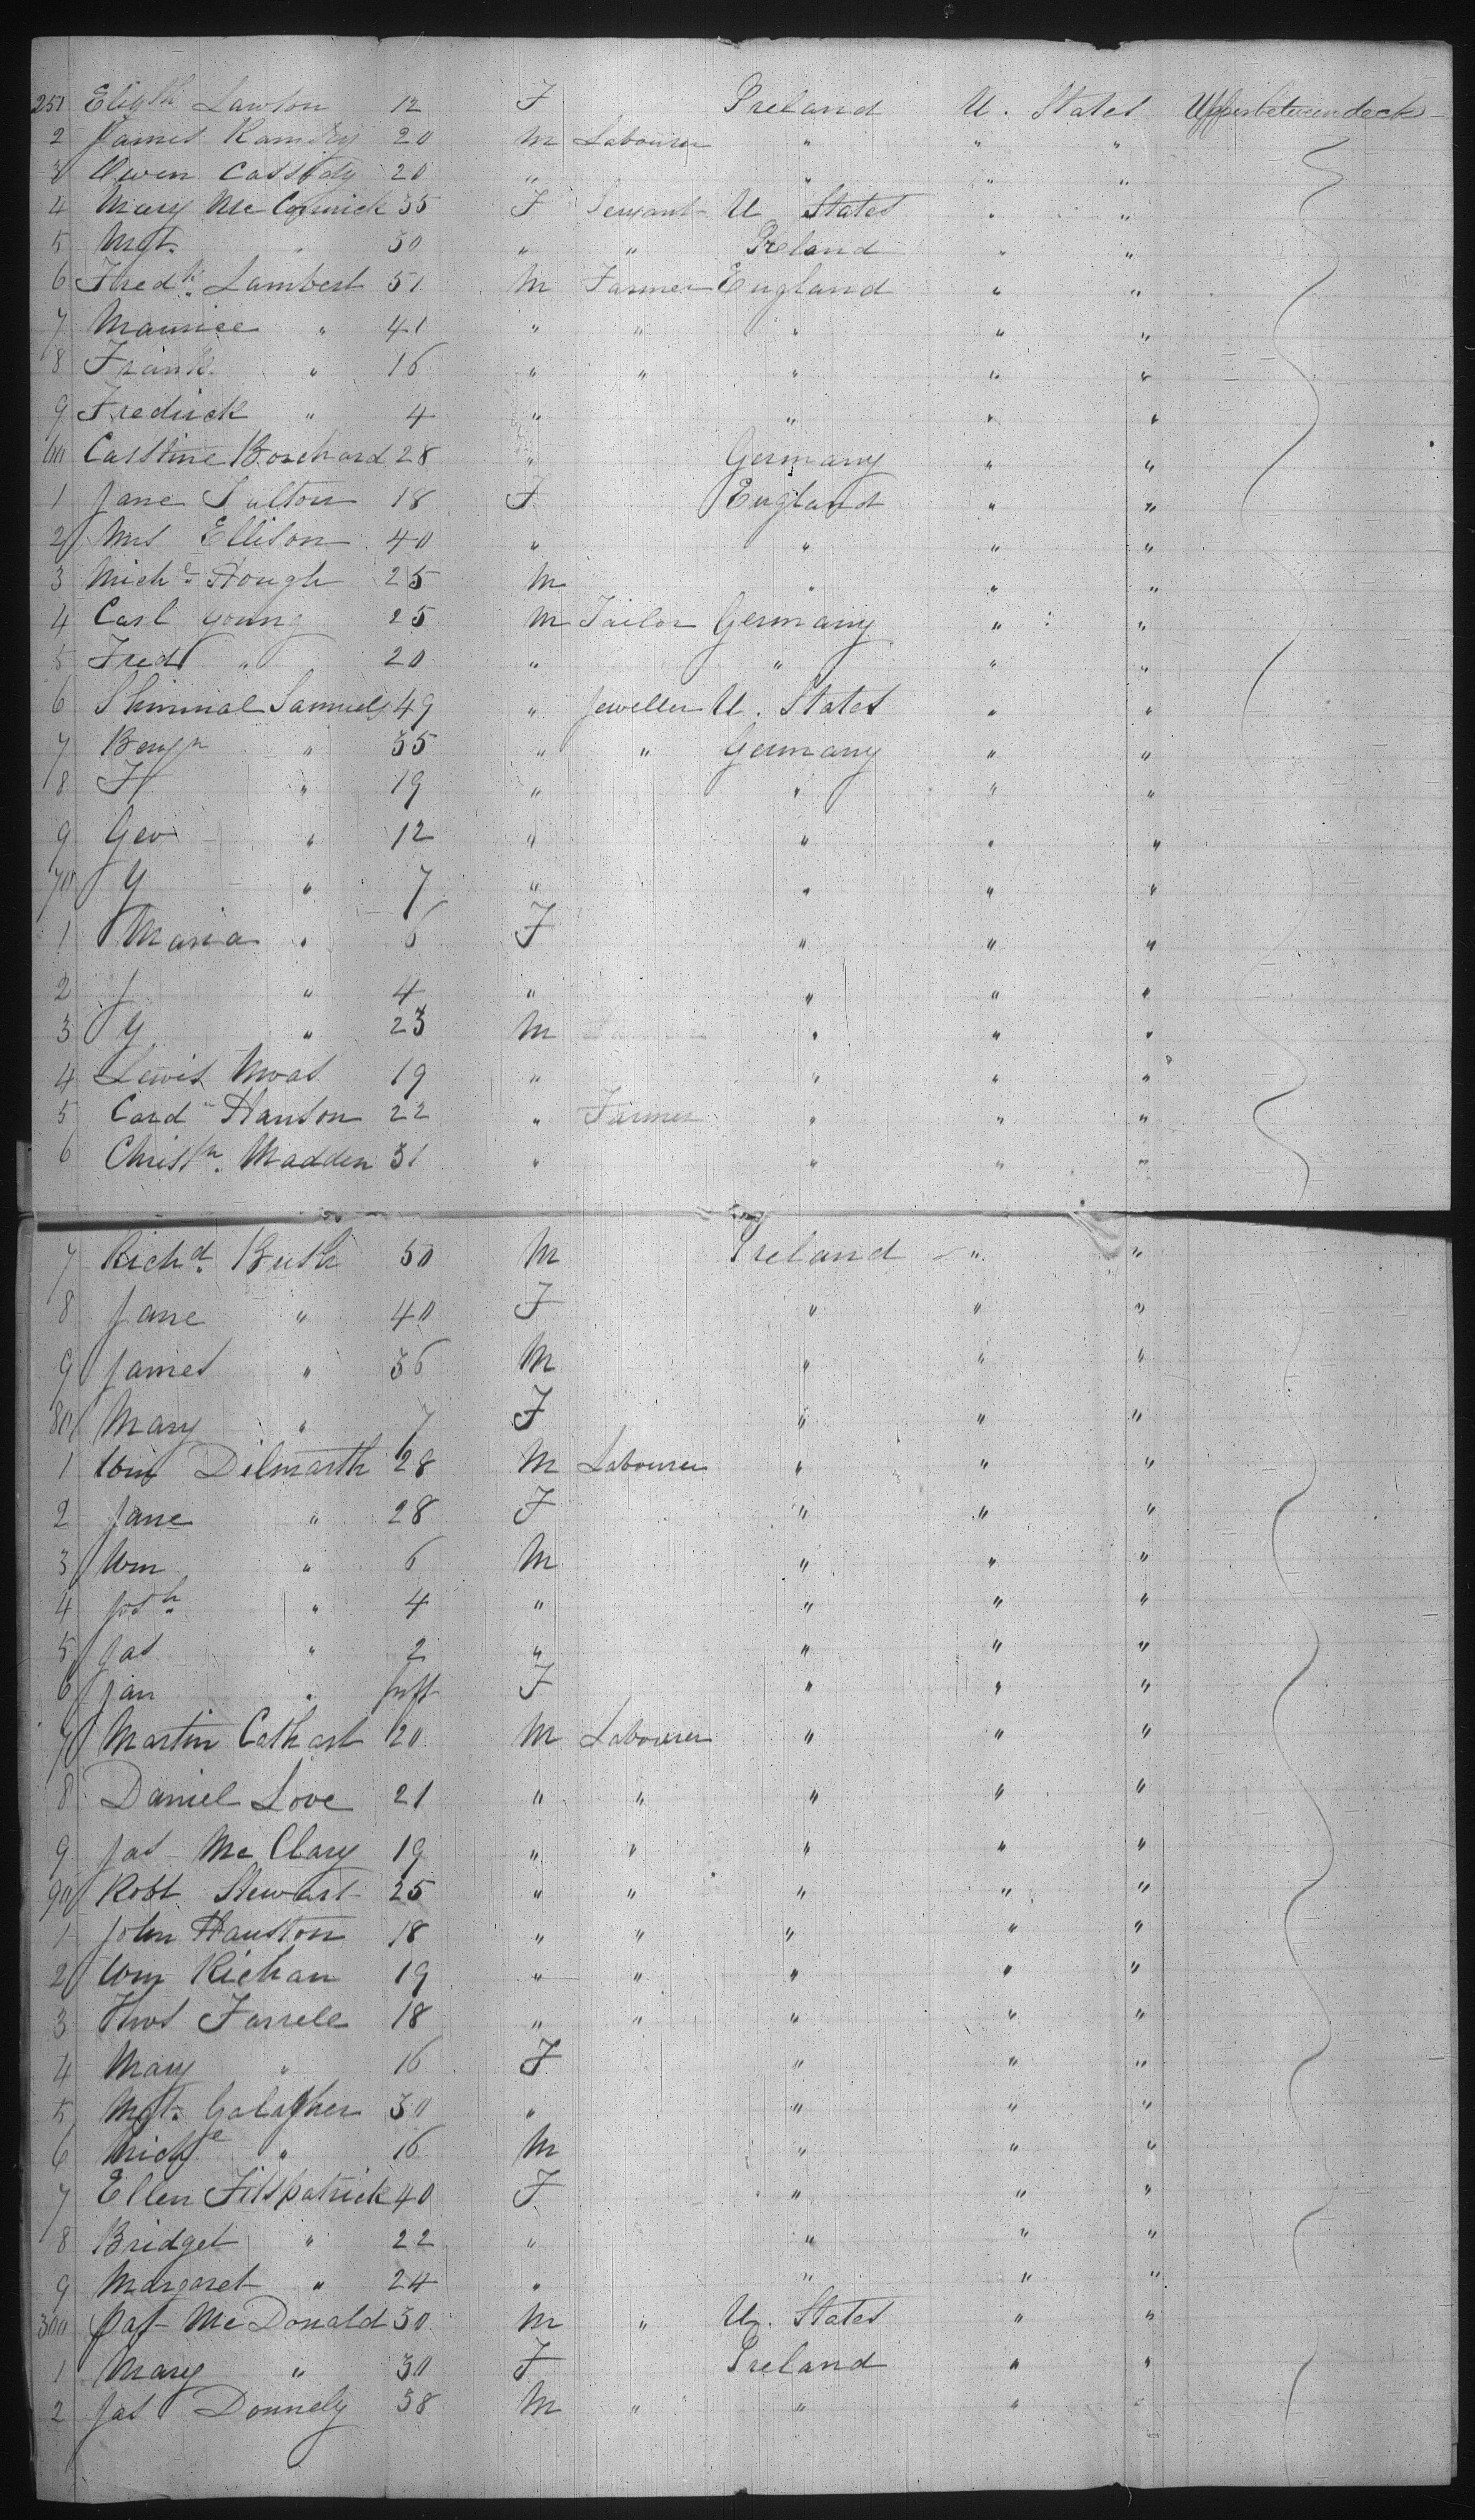 251 Elizth Lawton 12 F Ireland U. States Upperbetweendeck
2 James Ramsey 20 M Labourer " " "
3 Owen Cassidy 20 " " " "
4 Mary McCormick 35 F Servant U States " "
5 Mgt. " 50 " " Ireland " "
6 Fredk. Lambert 51 M Farmer England " "
7 Maurice " 41 " " " " "
8 Frank " 16 " " " " "
9 Fredrick " 4 " " " "
60 Casstine Borchard 28 " Germany " "
1 Jane Sulton 18 F England " "
2 Mrs Ellison 40 " " " "
3 Michl. Hough 25 M " " "
4 Carl Young 25 M Tailor Germany " "
5 Fredk " 20 " " " "
6 Samuels 49 " Jeweller U. States " "
7 Benjn " 35 " " Germany " "
8 H " 19 " " " "
9 Geo " 12 " " " "
70 Y " 7 " " " "
1 Maria " 6 F " " "
2 J " 4 " " " "
3 Y " 23 M " " "
4 Lewis Moas 19 " " " "
5 Card Hanson 22 " Farmer " " "
6 Christn. Madden 31 " " " "
7 Richd. Bush 50 M Ireland " "
8 Jane " 40 F " " "
9 James " 36 M " " "
80 Mary " 7 F " " "
1 Wm Dilmarth 28 M Labourer " " "
2 Jane " 28 F " " "
3 Wm " 6 M " " "
4 Josh " 4 " " " "
5 Jas " 2 " " " "
6 Jan " Inft F " " "
7 Martin Cathart 20 M Labourer " " "
8 Daniel Love 21 " " " " "
9 Jas McClary 19 " " " " "
90 Robt Stewart 25 " " " " "
1 John Hauston 18 " " " " "
2 Wm Richan 19 " " " " "
3 Thos Farrele 18 " " " " "
4 Mary " 16 F " " "
5 Mgt. Galagher 30 " " " "
6 Michl " 16 M " " "
7 Ellen Fitspatrick 40 F " " "
8 Bridget " 22 " " " "
9 Margaret " 24 " " " "
300 Pat McDonald 30 M " U. States " "
1 Mary " 30 F Ireland " "
2 Jas Donnely 38 M " " " "